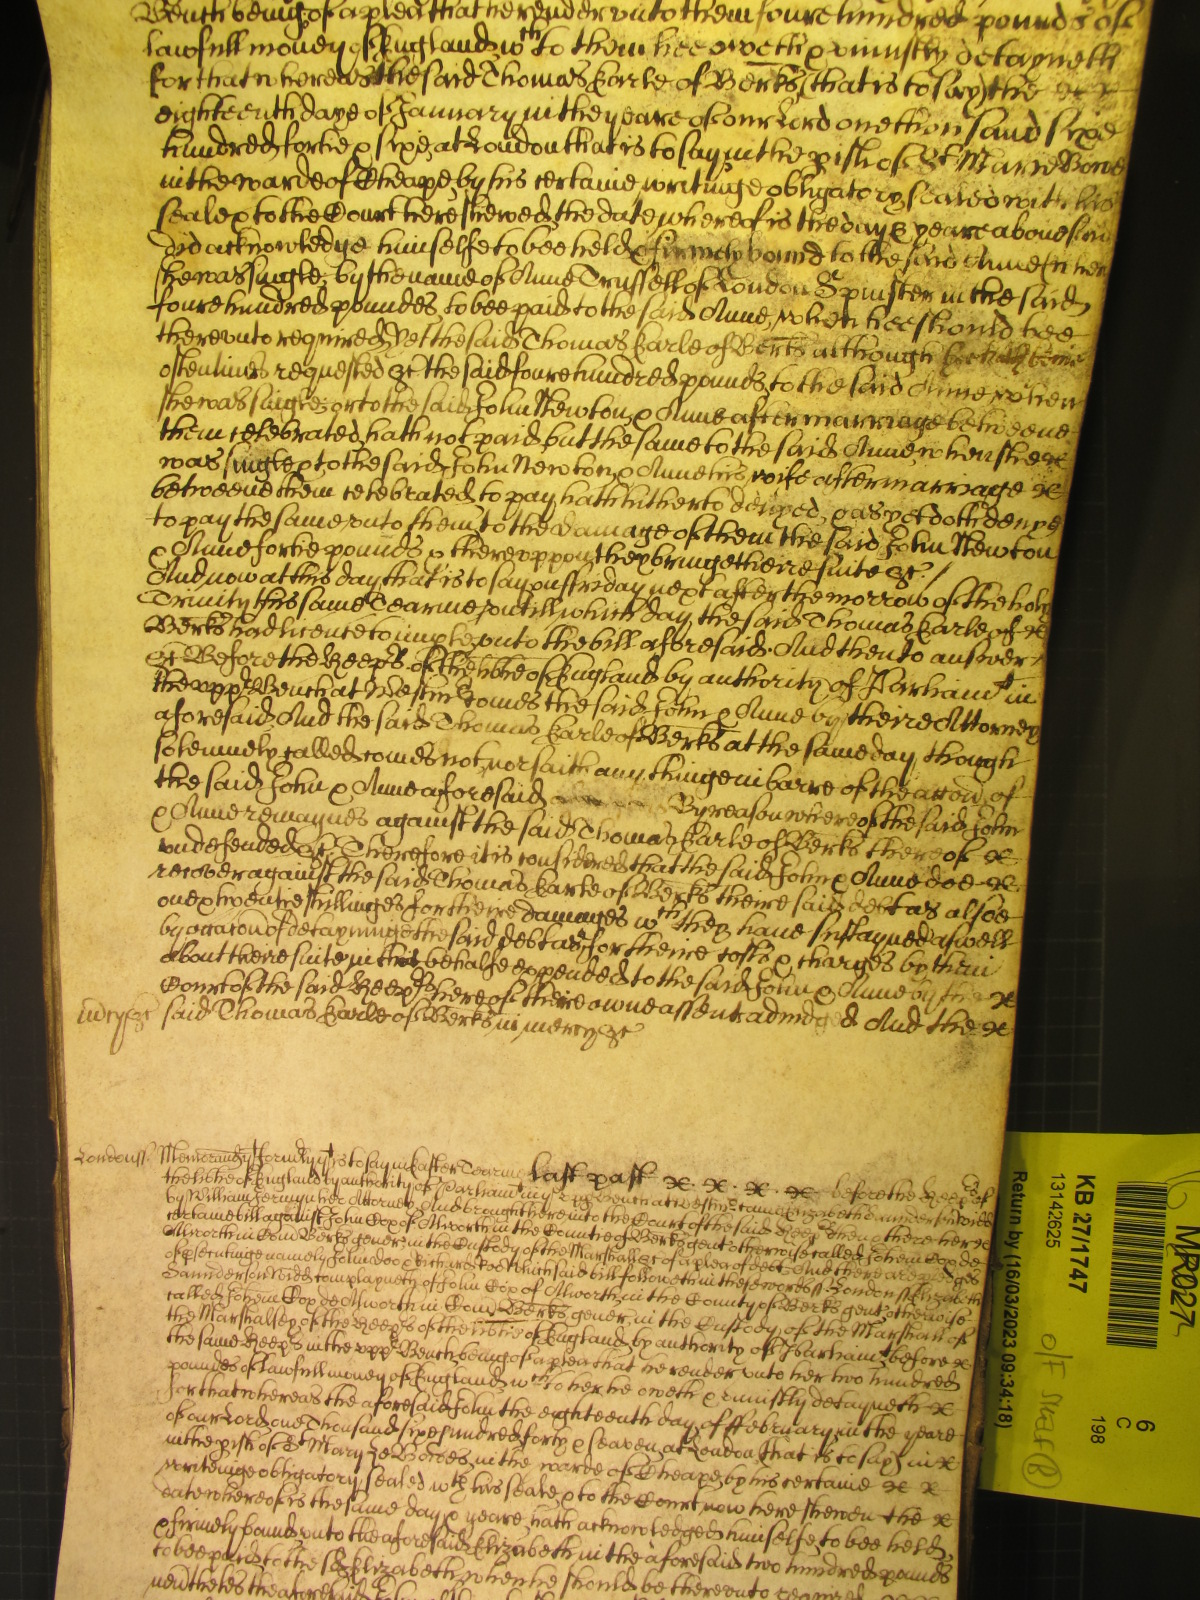 Bench being of a plea that he render unto them foure hundred pounds of
lawfull money of England wch to them hee oweth & uniustly detayneth
for that whereas the said Thomas Earle of Berks, that is to say the
eighteenth daye of January in the yeare of our Lord one thousand sixe
hundred fortie & sixe, at London that is to say in the pish of St Marie Bowe
in the warde of Cheape, by his certaine writinge obligatory sealed with his
seale & to the Court here shewed, the date whereof is the day & yeare abovesaid
did acknowledge himselfe to bee held & firmely bound to the said Anne (when
shee was single, by the name of Anne Trussell of London Spinster in the said
foure hundred poundes, to bee paid to the said Anne, when hee should bee
thereunto required, Yet the said Thomas Earle of Berks although
oftentimes requested &c the said foure hundred pounds, to the said Anne when
shee was single, or to the said John Newton & Anne after marriage betweene
them celebrated, hath not paid, but the same to the said Anne when shee
was single & to the said John Newton & Anne his wife after marriage
betweene them celebrated, to pay hath hitherto denyed, & as yet doth denye
to pay the same unto them, to the damage of them the said John Newton
& Anne fortie pounds & thereuppon they bringe theire suite &c /
And now at this day that is to say on Friday next after the morrow of the holy
Trinity this same Tearme, untill which day the said Thomas Earle of
Berks had licence to imple unto the bill aforesaid. And then to answer
&c Before the Keeps of the libtie of England by authority of Parliamt in
the uppr Bench at Westm comes the said John & Anne by theire Attorney
aforesaid, And the said Thomas Earle of Berks at the same day though
solemnely called comes not, nor saith any thinge in barre of the accon of
the said John & Anne aforesaid By reason whereof the said John
& Anne remaynes against the said Thomas Earle of Berks thereof
undefended &c, Therefore it is considered that the said John & Anne doe
recover against the said Thomas Earle of Berks theire said debt as alsoe
one & twentie shillinges for theire damages wch they have sustayned aswell
by occacon of detayninge the said debt as for theire costs & charges by them
about theire suite in this behalfe expended to the said John & Anne by the
Court of the said Keeps here of theire owne assent adiudged And the
mercy &c said Thomas Earle of Berks in mercy &c
London ss. Memorand that is to say in Easter Tearme last past before the Keeps of
the libtie of England by authority of Parliamt in ye upp Bench at Westm came
by William Jermyn her Attorney And brought here into the Court of the said Keeps then there her
certaine bill against John Cox of Alworth in the Countie of Berks gent otherwise called John Cox de
Alworth in Com Berks gener, in the Custody of the Marshall &c of a plea of debt And there are pledges
of psecutinge namely John Doo & Richard Roe Which said bill followeth in these words ss London ss Elizabeth
Saunderson widd complayneth of John Cox of Alworth in the County of Berks gent otherwise
called John Cox de Alworth in Com Berks gener, in the Custody of the Marshall of
the Marshalsey of the Keeps of the libtie of England by authority of Parliamt before
the same Keeps in the uppr Bench being of a plea that he render unto her two hundred
poundes of lawfull money of England wch to her he oweth & uniustly detayneth
for that whereas the aforesaid John the eighteenth day of February in the yeare
of our Lord one Thousand sixe hundred forty & seaven, at London (that is to say) in
the pish of St Mary le Bowes, in the warde of Cheape, by his certaine
writeinge obligatory, sealed with his seale & to the Court now here shewen the
date whereof is the same day & yeare, hath acknowledged himselfe to bee held
& firmely bound unto the aforesaid Elizabeth in the aforesaid two hundred pounds
to bee paid to the sd Elizabeth, when he should be thereunto required
neverthelesse the aforesaid
KB 27/1747
13142625
Return by (16/03/2023 09:34:18)
6
C
198
MR027
O/F Shelf